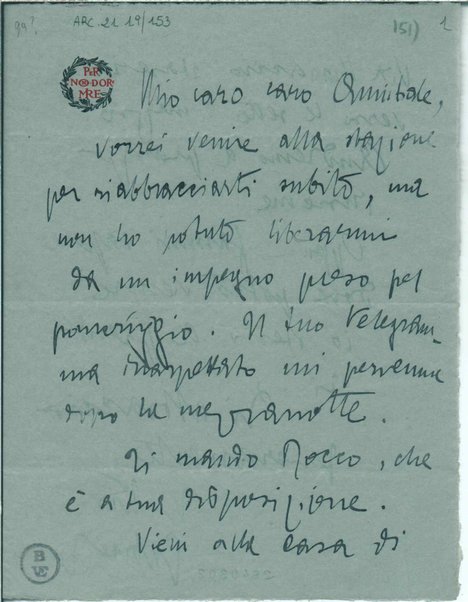 99?
ARC. 21 19/153
151)
1
PER
NON DOR
MIRE
Mio caro caro Annibale,
vorrei venire alla stazione
per riabbracciarti subito, ma
non ho potuto liberarmi
da un impegno preso pel
pomeriggio. Il tuo telegram-
ma inaspettato mi pervenne
dopo la mezzanotte.
Ti mando Rocco, che
è a tua disposizione.
Vieni alla casa di
B
VE